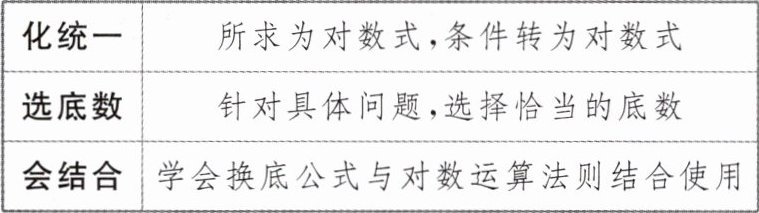 化统一 所求为对数式,条件转为对数式
选底数 针对具体问题,选择恰当的底数
会结合 学会换底公式与对数运算法则结合使用